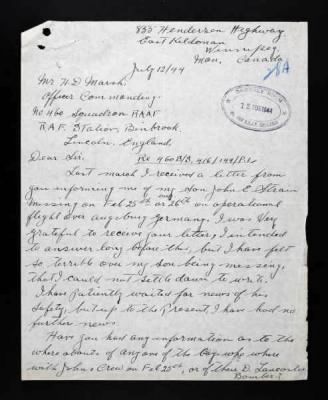 855 Henderson Highway
East Kildonan
Winnipeg
Man. Canada
July 12/44
28A
Mr H D Marsh.
Officer Commanding.
No 460 Squadron RAAF
R.A.F. Station, Binbrook.
Lincoln, England.
Dear Sir. Re 460B/B
Last March I received a letter from
you informing me of my son John E Strain
missing on Feb 25th and or 26th on operational
flight over Augsburg Germany. I was Very
grateful to receive your letter, I intended
to answer long before this, but I have felt
so terrible over my son being missing,
that I could not settle down to write.
I have Patiently waited for news of his
safety, but up to the Present, I have had no
further news.
Have you had any information as to the
where abouts of any one of the boys who where
with Johns Crew on Feb 25th, or of their D. Lancaster
Bomber?